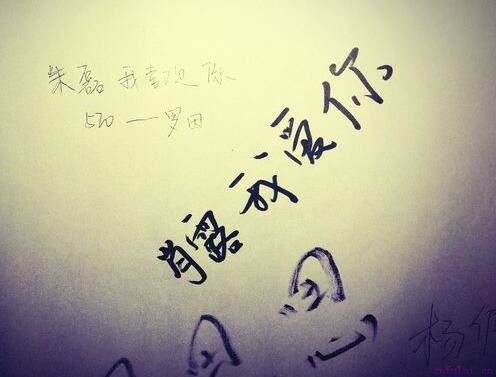 朱磊 我喜欢你
520 一 罗田
肖露 我爱你
思
杨